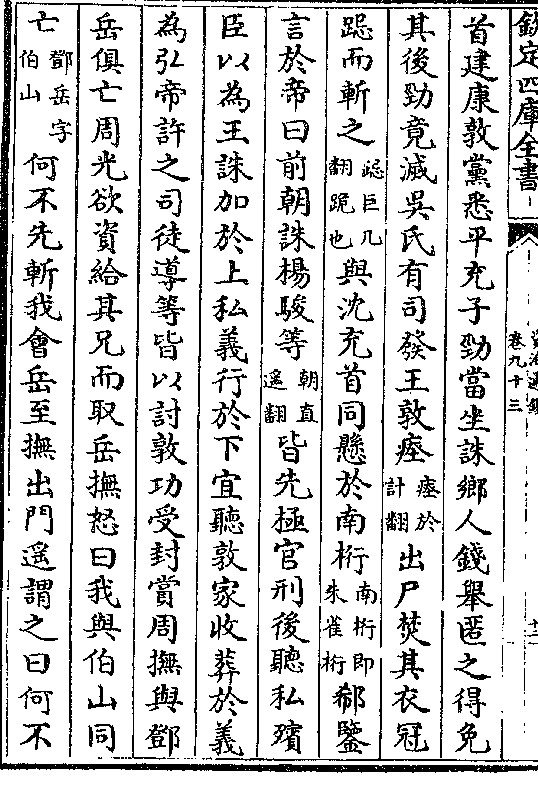 欽定四庫全書
卷九十三
首建康敦黨悉平充子勁當坐誅鄉人錢舉匿之得免
其後勁竟滅吳氏有司發王敦瘞瘞於計翻出尸焚其衣冠
跽而斬之跽巨几翻跪也與沈充首同懸於南桁南桁即朱雀桁郗鑒
言於帝曰前朝誅楊駿等朝直遥翻皆先極官刑後聽私殯
臣以為王誅加於上私義行於下宜聽敦家收葬於義
為弘帝許之司徒導等皆以討敦功受封賞周撫與鄧
岳俱亡周光欲資給其兄而取岳撫怒曰我與伯山同
亡鄧岳字伯山何不先斬我會岳至撫出門遥謂之曰何不